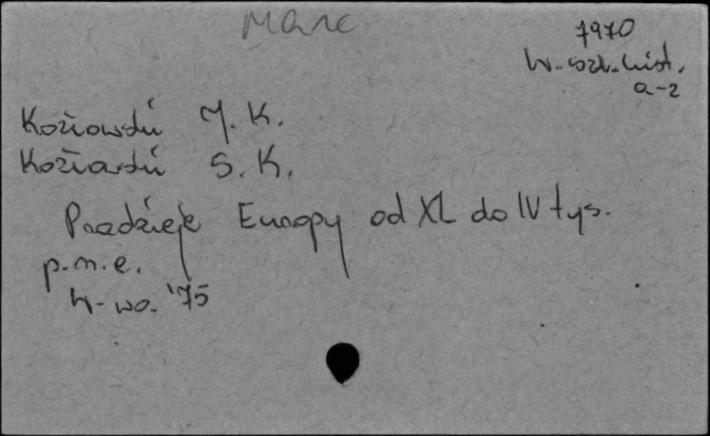 Marc
7970
W-szt. hist.
a-z
Kozłowski J. K.
Kozłowski S. K.
Pradzieje Europy od XL do IV tys.
p.n.e.
W-wa. '75